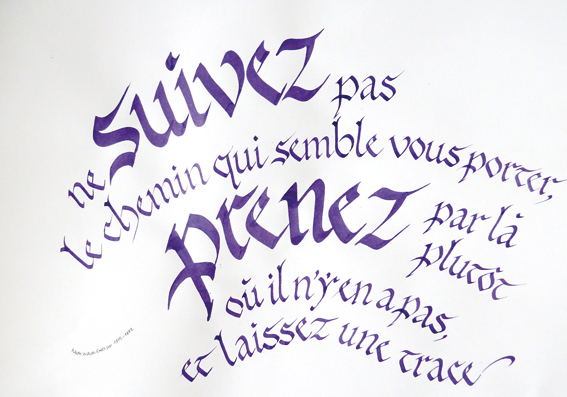 ne suivez pas
le chemin qui semble vous porter,
prenez par là
plutôt
où il n'y en a pas,
et laissez une trace